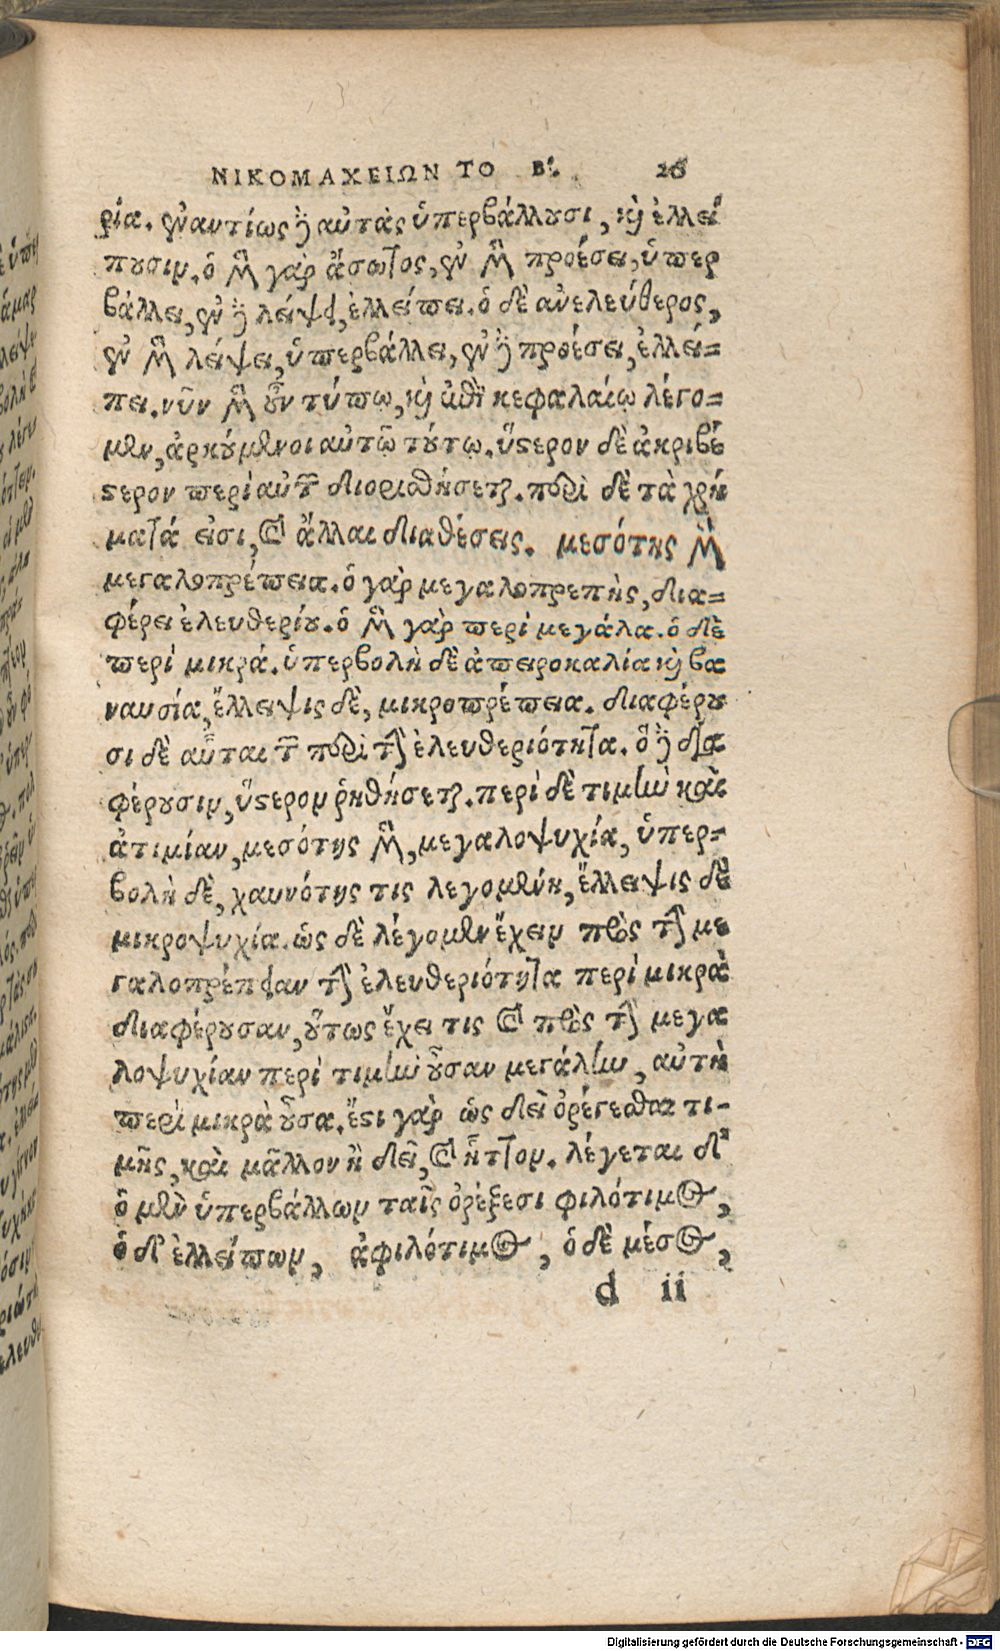 ΝΙΚΟΜΑΧΕΙΩΝ ΤΟ Β. 26
ρία. ἐναντίως δ' αὐτὰς ὑπερβάλλουσι, καὶ ἐλλεί
πουσιν. ὁ μὲν γὰρ ἄσωτος, ἐν μὲν προέσει, ὑπερ
βάλλει, ἐν δὲ λήψει, ἐλλείπει. ὁ δὲ ἀνελεύθερος,
ἐν μὲν λείψει, ὑπερβάλλει, ἐν δὲ προέσει, ἐλλεί=
πει. νῦν μὲν οὖν τύπῳ, καὶ ἐπὶ κεφαλαίῳ λέγο=
μεν, ἀρκούμενοι αὐτῷ τούτῳ. ὕστερον δὲ ἀκριβέ
στερον περὶ αὐτῶν διορισθήσεται. περὶ δὲ τὰ χρή
ματά εἰσι, καὶ ἄλλαι διαθέσεις. μεσότης μὲν
μεγαλοπρέπεια. ὁ γὰρ μεγαλοπρεπὴς, δια=
φέρει ἐλευθερίου. ὁ μὲν γὰρ περὶ μεγάλα. ὁ δὲ
περὶ μικρά. ὑπερβολὴ δὲ ἀπειροκαλία καὶ βα
ναυσία, ἔλλειψις δὲ, μικροπρέπεια. διαφέρου
σι δὲ αὗται τῶν περὶ τὴν ἐλευθεριότητα. ὅπῃ δὲ δια
φέρουσιν, ὕστερον ῥηθήσεται. περὶ δὲ τιμὴν καὶ
ἀτιμίαν, μεσότης μὲν, μεγαλοψυχία, ὑπερ=
βολὴ δὲ, χαυνότης τις λεγομένη, ἔλλειψις δὲ
μικροψυχία. ὡς δὲ λέγομεν ἔχειν πρὸς τὴν με
γαλοπρέπειαν τὴν ἐλευθεριότητα περὶ μικρὰ
διαφέρουσαν, οὕτως ἔχει τις καὶ πρὸς τὴν μεγα
λοψυχίαν περὶ τιμὴν οὖσαν μεγάλην, αὐτὴ
περὶ μικρὰ οὖσα. ἔστι γὰρ ὡς δεῖ ὀρέγεσθαι τι-
μῆς, καὶ μᾶλλον ἢ δεῖ, καὶ ἧττον. λέγεται δ'
ὁ μὲν ὑπερβάλλων ταῖς ὀρέξεσι φιλότιμος,
ὁ δ' ἐλλείπων, ἀφιλότιμος, ὁ δὲ μέσος,
d ii
Digitalisierung gefördert durch die Deutsche Forschungsgemeinschaft - DFG